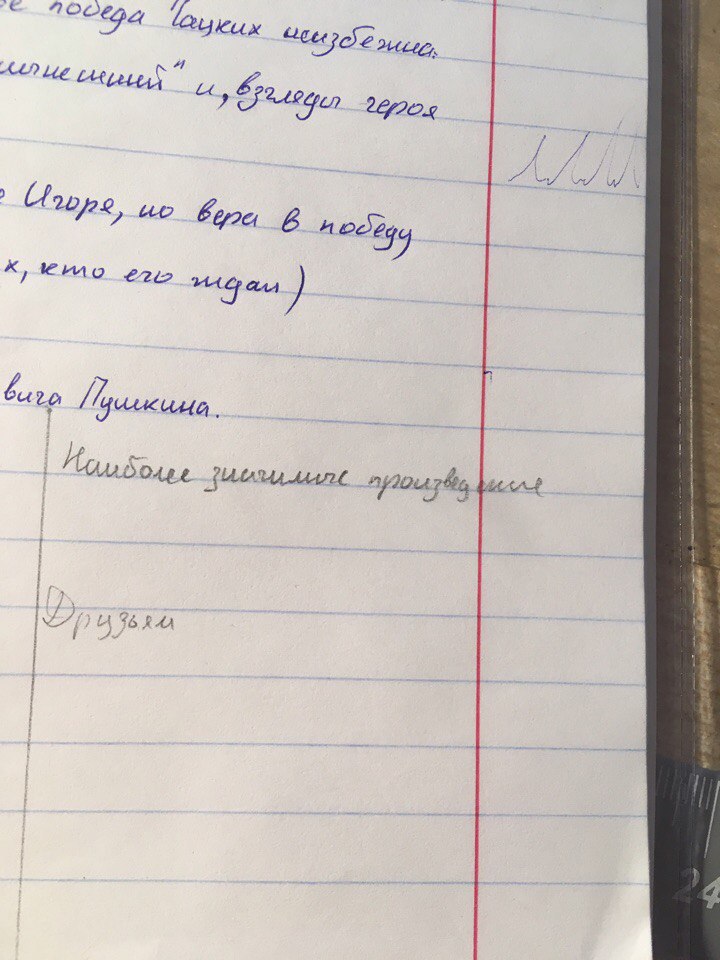 е победа Чацких неизбежна.
нынешний" и, взгляды героя
Игоря, но вера в победу
х, кто его ждал)
вича Пушкина.
Наиболее значимые произведение
Друзьям
24